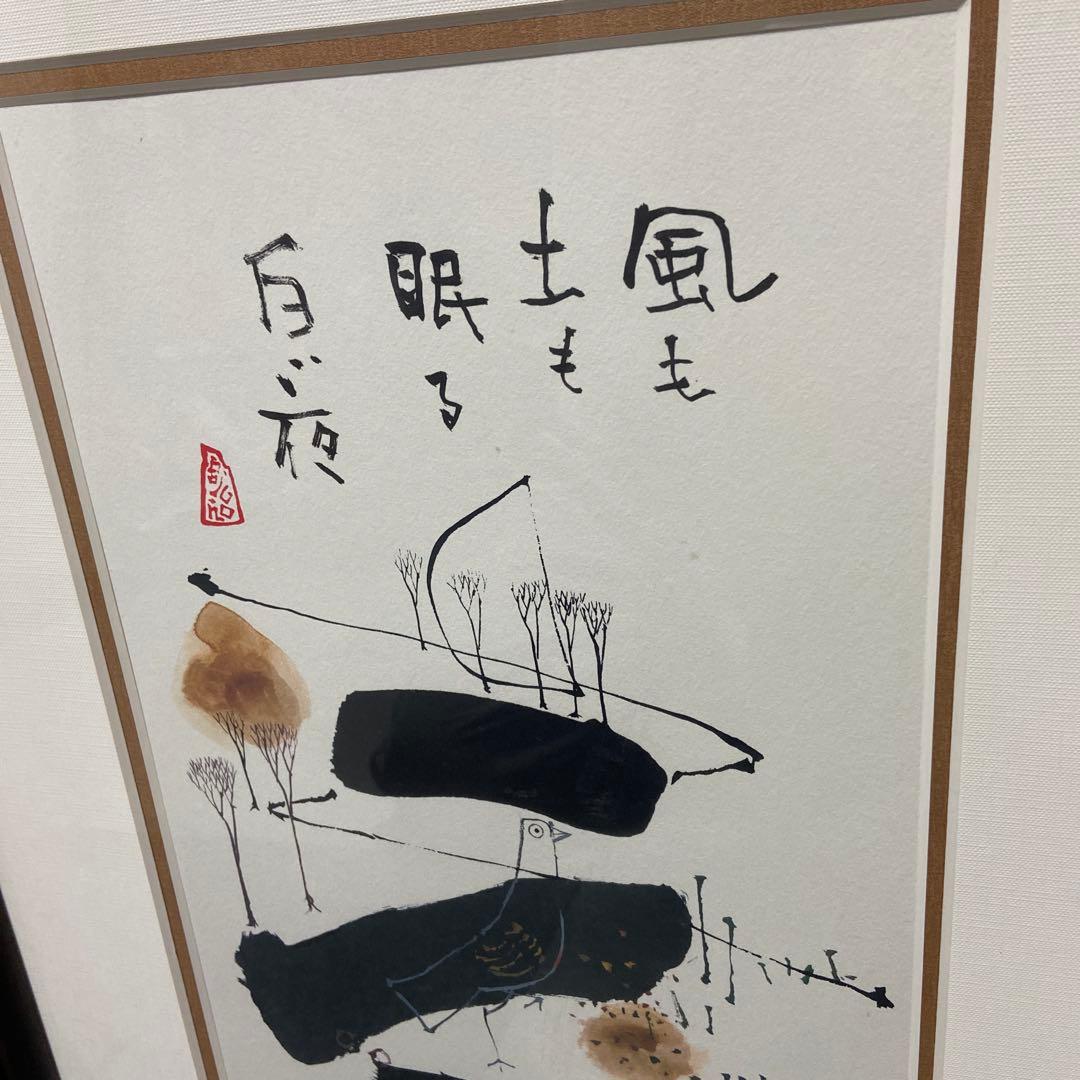 風も
土も
眠る
白い夜